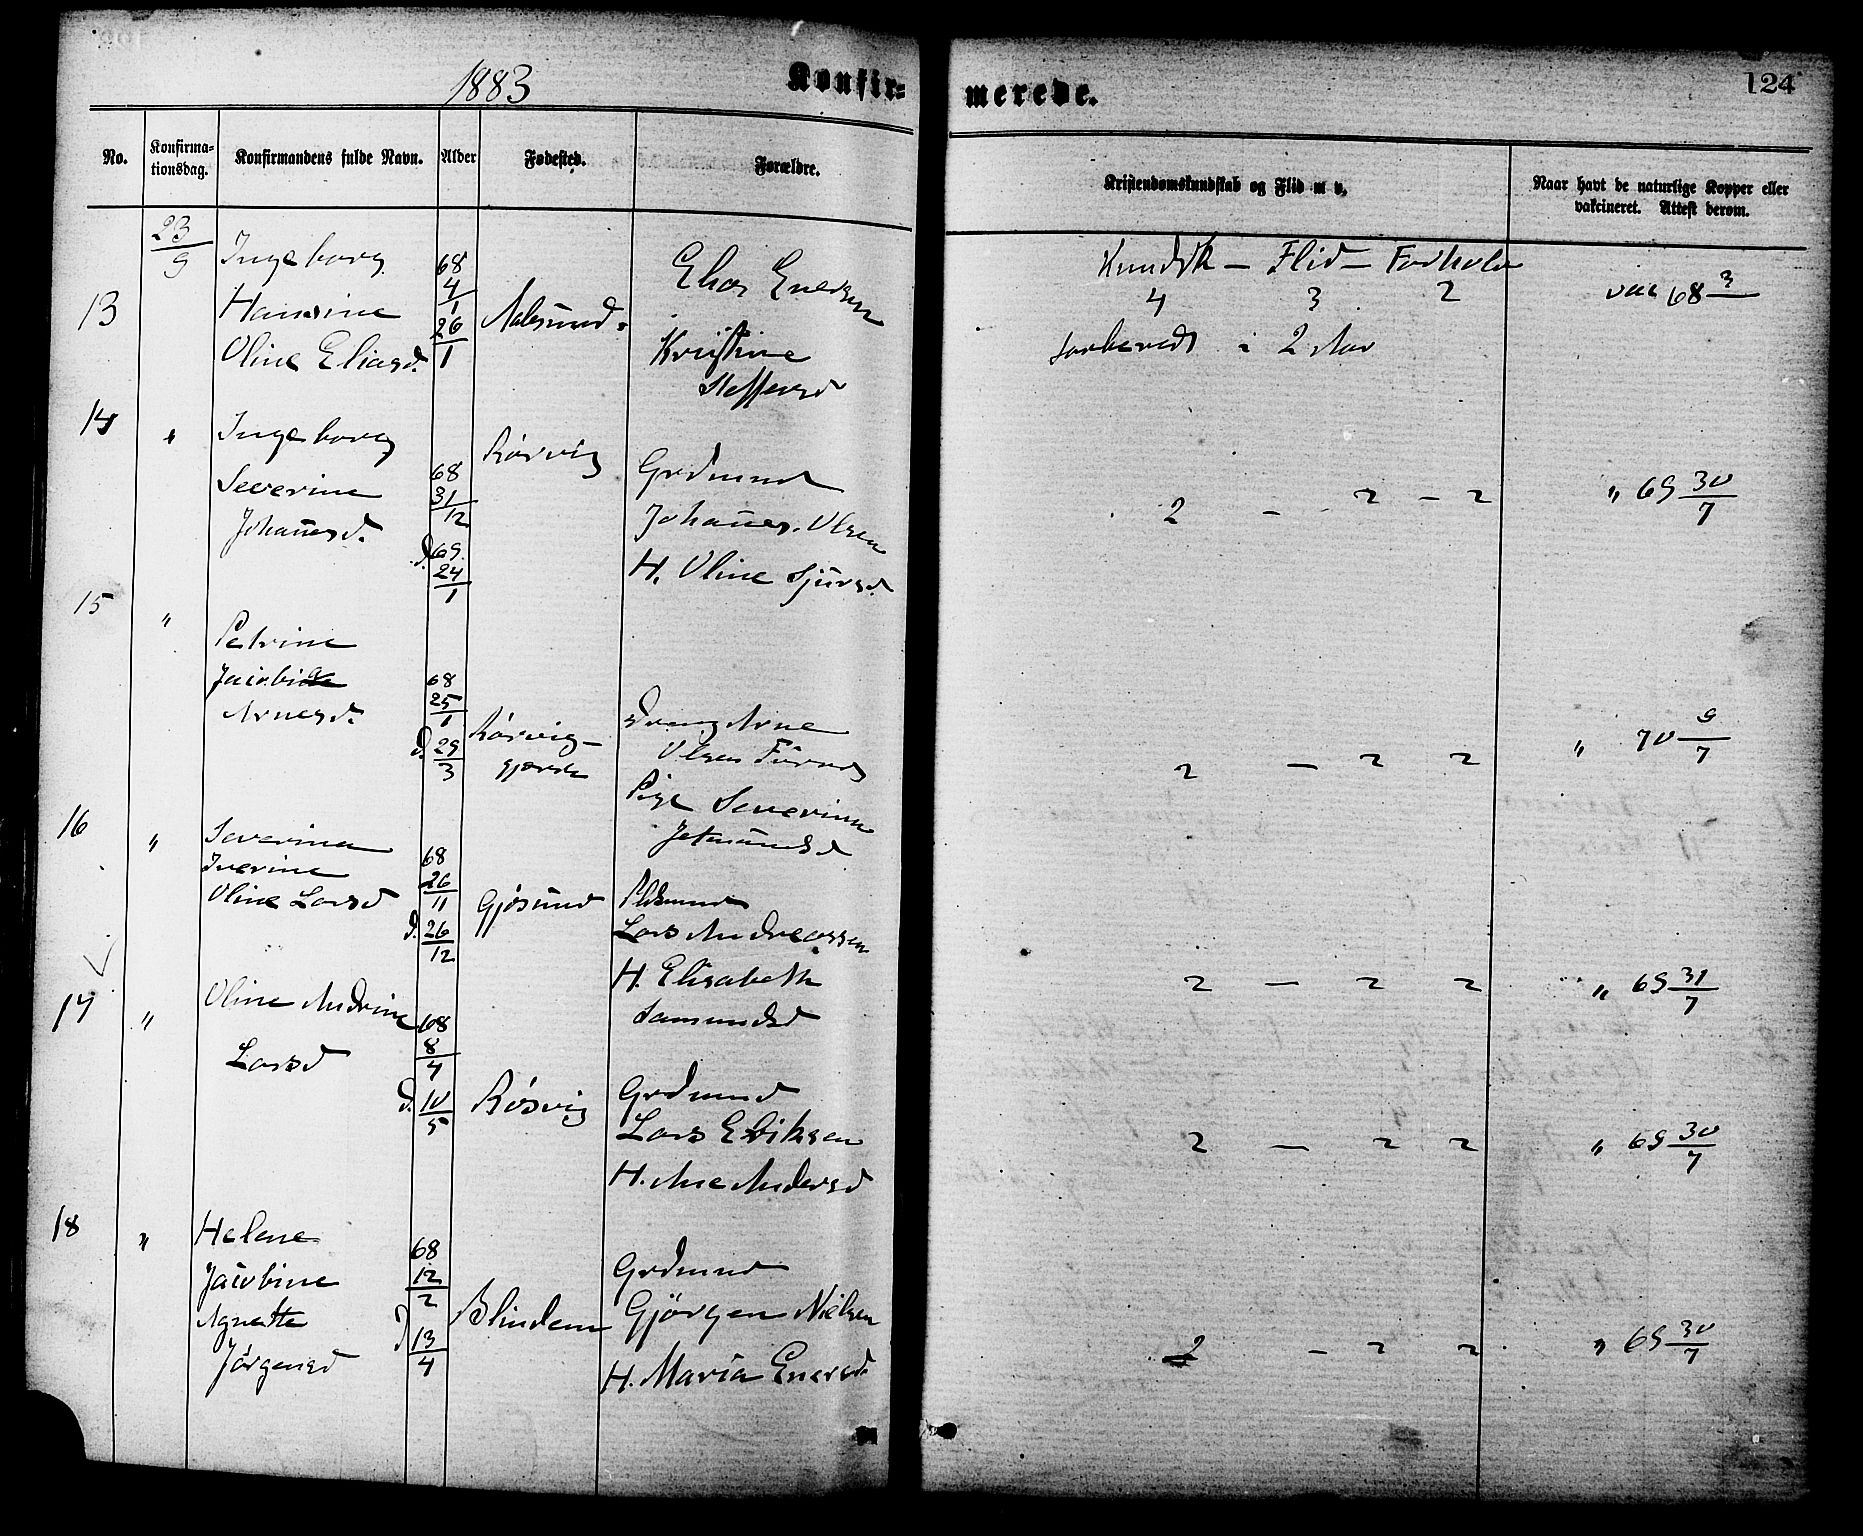 1883 Konfir=
merede. 124
No. Konfirma-tionsdag. Konfirmandens fulde Navn. Alder Fødested. Forældre.
Kristendomskundskab og Flid m v. Naar havt de naturlige Kopper eller vakcineret. Attest derom.
23/9
13 Ingeborg
Hansine
Oline Eliasd.
68
4/1
26/1
Aalesund.
Elias
Kristine
Steffensd
Kundsk — Flid — Forhold
4 3 2
forberedt i 2 Aar
vac 68 3
14 " Ingeborg
Severine
Johannesd.
68
31/12
d. 69
24/1
Rørvig
Grdmand
Johannes Olsen
H. Oline Sjursd.
2 — 2 — 2
" 69 30/7
15 " Petrine
Jacobine
Arnesd.
68
25/1
d. 29/3
Rørvig-
gjerde
Arne
Olsen
Pige Severine
2 — 2 2
" 70 9/7
16 " Severine
Iverine
Oline Larsd
68
26/11
d. 26/12
Gjøsund
Lars Andreassen
H. Elisabeth
Samundsd
2 — 2 2
" 69 31/7
17 " Oline Andrine
Larsd
68
8/4
d. 10/5
Røsvig
Grdmand
Lars Eriksen
H. Ane Andersd
2 — 2 2
" 69 30/7
18 " Helene
Jacobine
Agnette
Jörgensd
68
12/2
d 13/4
Blindem
Grdmand
Gjörgen Nielsen
H. Maria Enersd.
2 — 2 2
" 69 30/7